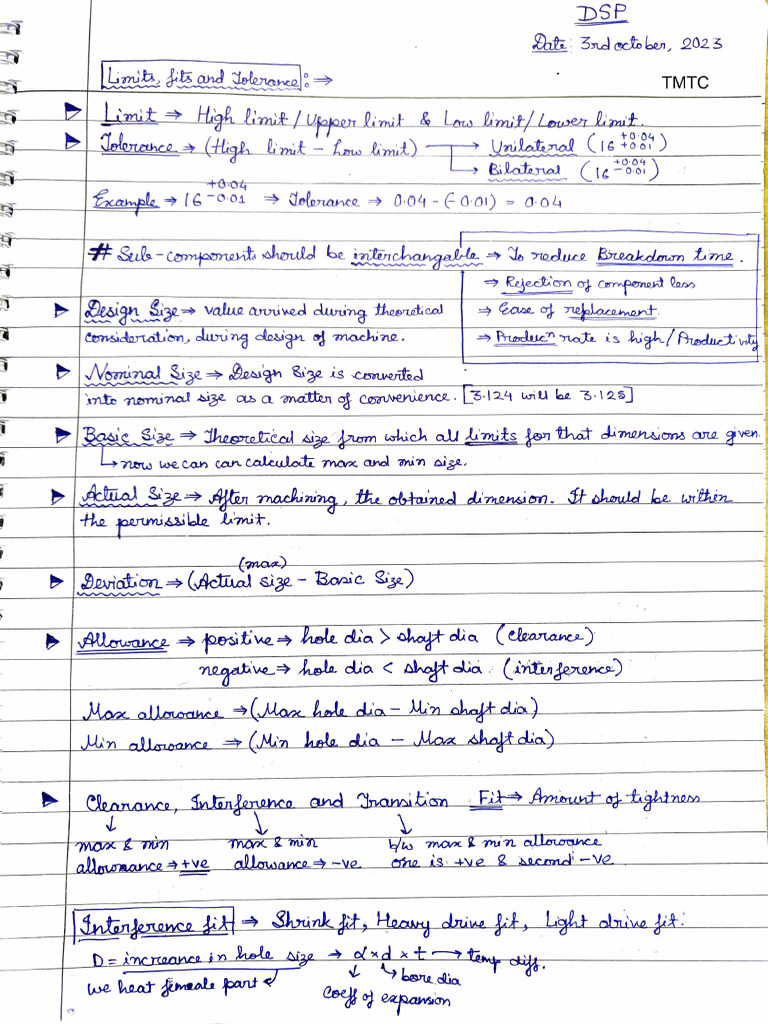 DSP
Date: 3rd october, 2023
Limits, fits and Tolerance :⇒
TMTC
Limit → High limit / Upper limit & Low limit / Lower limit.
Tolerance → (High limit - Low limit) → Unilateral (16 +0.04 +0.01)
→ Bilateral (16 +0.04 -0.01)
Example → 16 +0.04 -0.01 ⇒ Tolerance → 0.04 - (-0.01) = 0.04
# Sub-components should be interchangable → To reduce Breakdown time.
→ Rejection of component less
→ Ease of replacement
→ Producⁿ rate is high / Productivity
Design Size → value arrived during theoretical
consideration, during design of machine.
Nominal Size → Design Size is converted
into nominal size as a matter of convenience. [3.124 will be 3.125]
Basic Size → Theoretical size from which all limits for that dimensions are given.
↳ now we can can calculate max and min size.
Actual Size → After machining, the obtained dimension. It should be within
the permissible limit.
(max)
Deviation → (Actual size - Basic Size)
Allowance → positive → hole dia > shaft dia (clearance)
negative → hole dia < shaft dia. (interference)
Max allowance → (Max hole dia - Min shaft dia)
Min allowance → (Min hole dia - Max shaft dia)
Clearance, Interference and Transition Fit → Amount of tightness
↓ ↓ ↓
max & min max & min b/w max & min allowance
allowonance → +ve allowance → -ve one is +ve & second -ve.
Interference fit → Shrink fit, Heavy drive fit, Light drive fit.
D = increance in hole size → α × d × t → temp diff.
we heat female part ↳ bore dia
coeff of expansion